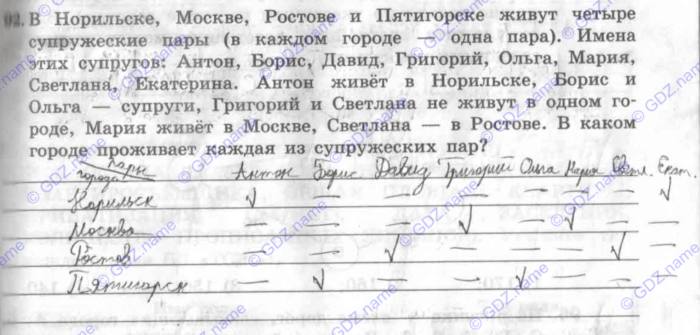 02. В Норильске, Москве, Ростове и Пятигорске живут четыре
супружеские пары (в каждом городе — одна пара). Имена
этих супругов: Антон, Борис, Давид, Григорий, Ольга, Мария,
Светлана, Екатерина. Антон живёт в Норильске, Борис и
Ольга — супруги, Григорий и Светлана не живут в одном го-
роде, Мария живёт в Москве, Светлана — в Ростове. В каком
городе проживает каждая из супружеских пар?
пары
города Антон Борис Давид Григорий Ольга Мария Светл. Екат.
Норильск √ — — — — — — √
Москва — — — √ — √ — —
Ростов — — √ — — — √ —
Пятигорск — √ — — √ — — —
© GDZ.name